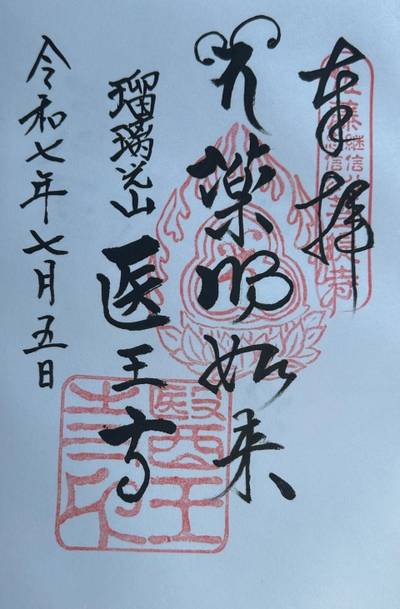 奉拝
薬師如来
瑠璃光山
医王寺
令和七年七月五日
醫王寺印